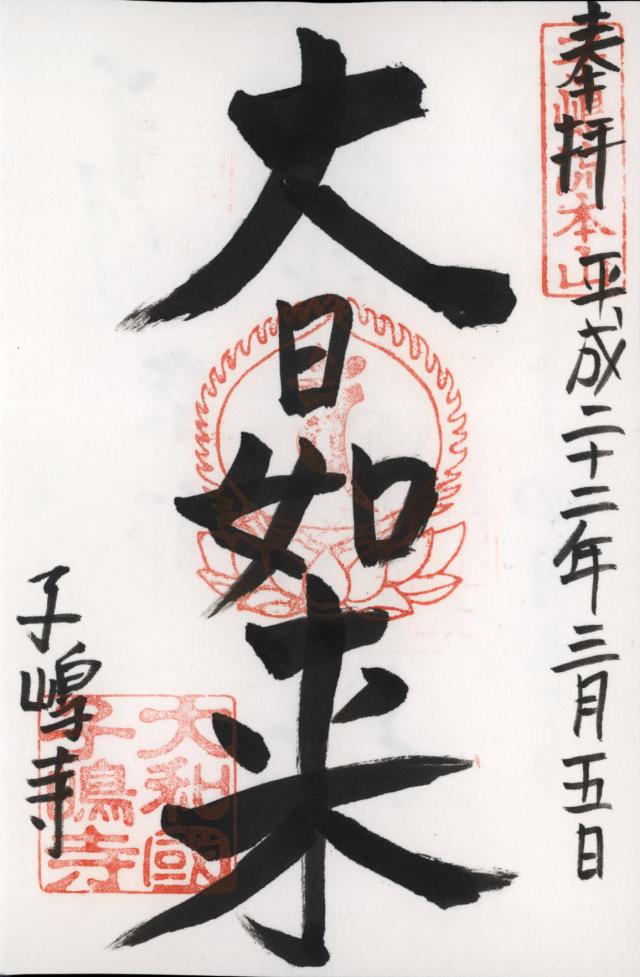 奉拝 平成二十二年三月五日
子嶋流本山
大日如来
子嶋寺
大和國
子嶋寺